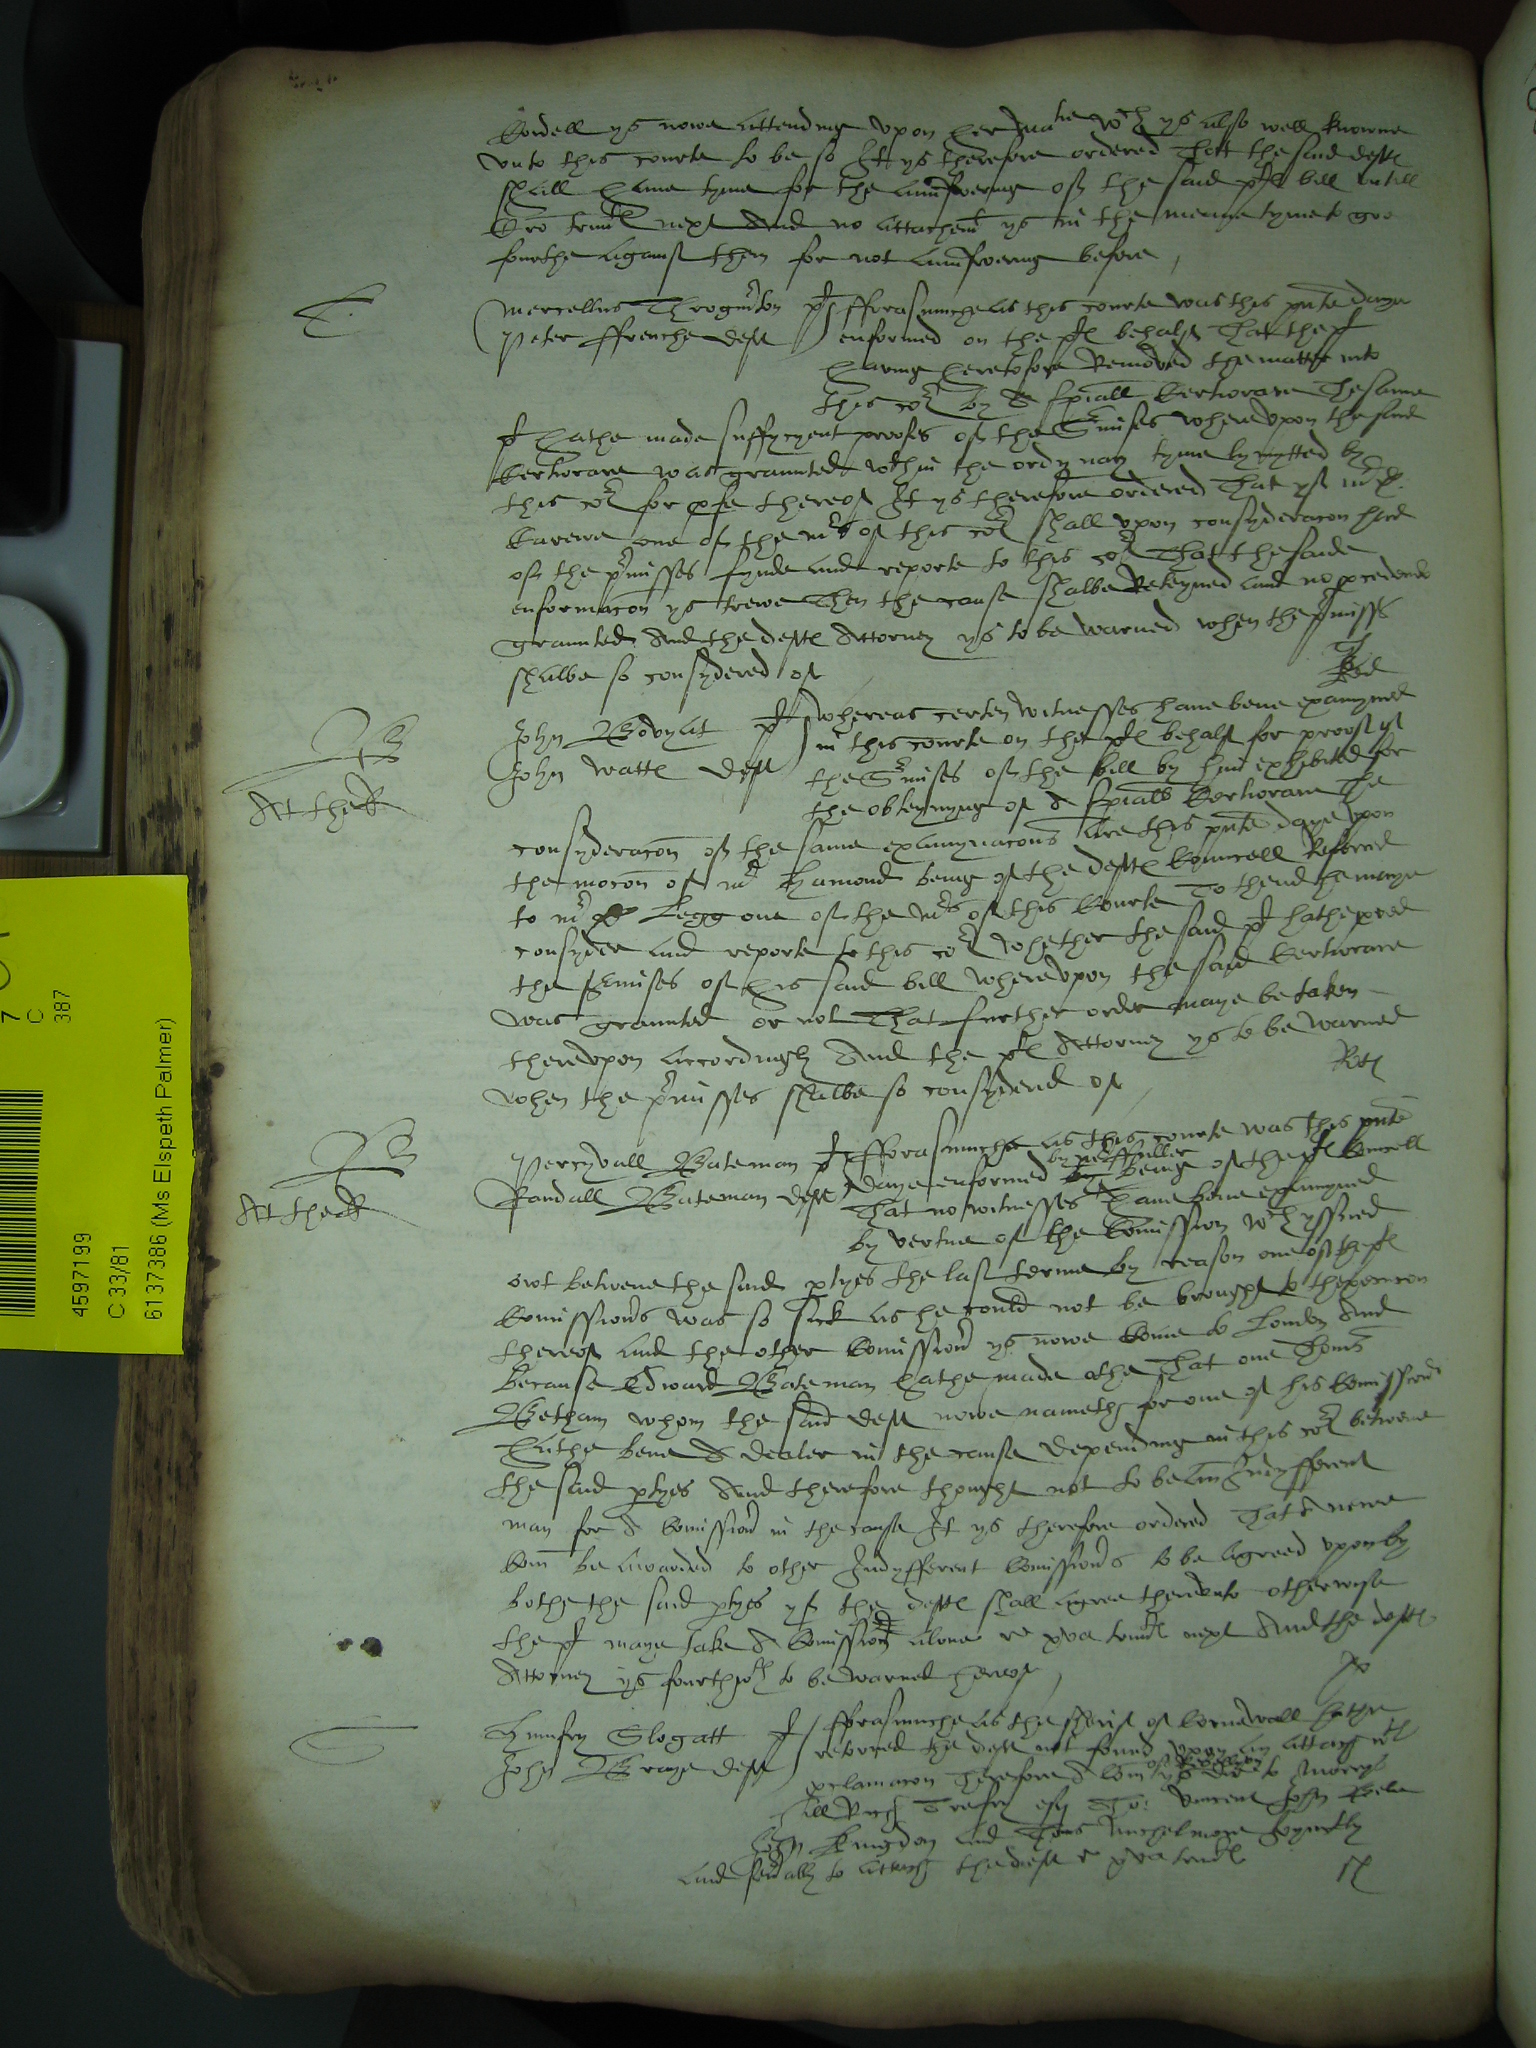 Cordell ys nowe attending vpon her Matie wch ys also well knowne
vnto this courte to be so It ys therefore ordered That the said deftes
shall haue tyme for the aunswering of the said pltes bill vntill
Cro trinitat next And no attachemt ys in the meane tyme to goe
fourthe against them for not aunswering before
T
Mercellus Throgmton pl
Peter ffrenche deft
fforasmuche as this courte was this pnte daye
enformed on the pltes behalf That the pl
having heretofore Removed the matter into
this cort by A spiall Certiorare The same
pl hathe made suffycyent proofes of the Surmises wherevpon the said
Certiorare was graunted wthin the ordynary tyme lymytted by
this cort for profe thereof It ys therefore ordered That yf mr D.
Carewe one of the mrs of this cort shall vpon consyderacon had
of the pmisses fynde and reporte to this cort That the saide
enformacon ys trewe Then the cause shalbe Reteyned and no pcedendo
graunted And the deftes Attorney ys to be warned when the pmisses
shalbe so consydered of
B
At theck
John Bodyat pl
John Watte deft
Whereas certen witnesses haue bene examyned
in this courte on the pltes behalf for proof of
the Surmises of the bill by him exhibited for
the obteynyng of A spiall Certiorare The
consyderacon of the same examynacons are this pnte daye vpon
the mocon of mr Hamond being of the deftes Councell Referred
to mr D Legg one of the Mrs of this Courte To thend he maye
consyder and reporte to this cort whether the said pl hathe proved
the surmises of his said bill wherevpon the said Certiorare
was graunted or not That further order maye be taken
therevpon accordingly And the pltes Attorney ys to be warned
when the pmisses shalbe so consydered of
B
At theck
Percyvall Bateman pl
Randall Bateman deft
fforasmuche as this courte was this pnte
daye enformed by mr ffuller being of the pltes Councell
That no witnesses haue bene examyned
by vertue of the Comission wch yssued
owt betwene the said ptyes the last terme by reason one of the pltes
Comissiors was so sick as he could not be brought to thexecucon
thereof and the other Comissior ys nowe come to London And
because Edward Bateman hathe made othe That one Thoms
Betham whom the said deft nowe nameth for one of his Comissiors
hathe bene A dealer in the cause depending in this cort betwene
the said ptyes And therefore thought not to be an Indyfferent
man for A Comissior in the cause It ys therefore ordered That A newe
Com be awarded to other Indyfferent Comissiors to be agreed vpon by
bothe the said ptyes yf the deftes shall agree therevnto otherwise
the pl maye take A Comission alone re xva trinitat next And the deftes
Attorney ys fourthwth to be warned hereof
Humfry Slogatt pl
John Braye deft
fforasmuche as the sherif of Cornewall hathe
retorned the deft not found vpon an attach wth
pclamacon Therefore A Com of Rebellion ys awarded to
Rich Trefry esq Vincent John
John Kingdon and Thos Mychelmore joyntly
and sevally to attach the deft re xva trinitat